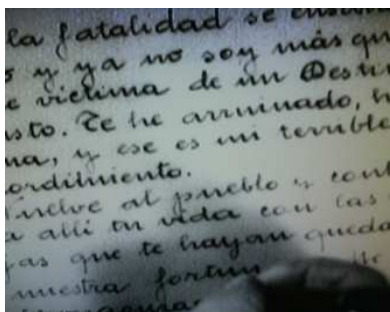 la fatalidad se
s y ya no soy más qu
e victima de un Desti
sto. Te he arruinado, h
ma, y ese es mi terrible
ordimiento.
Vuelve al pueblo y cont
a allí tu vida con las
jas que te hayan queda
nuestra fortun